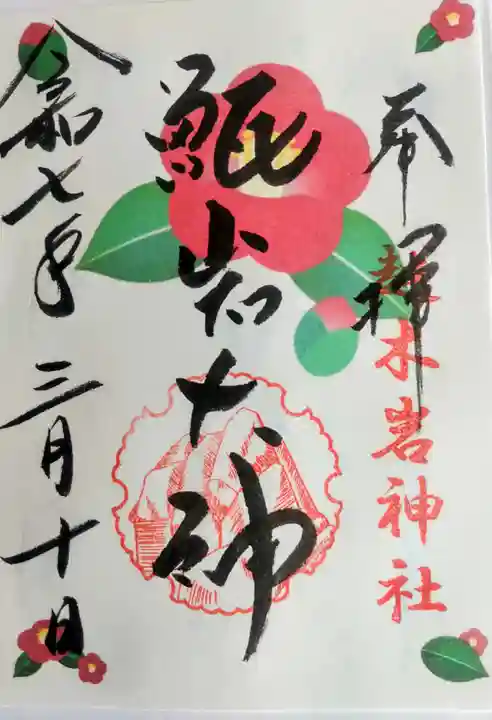 奉拝
越木岩神社
甑岩大神
令和七年三月十日